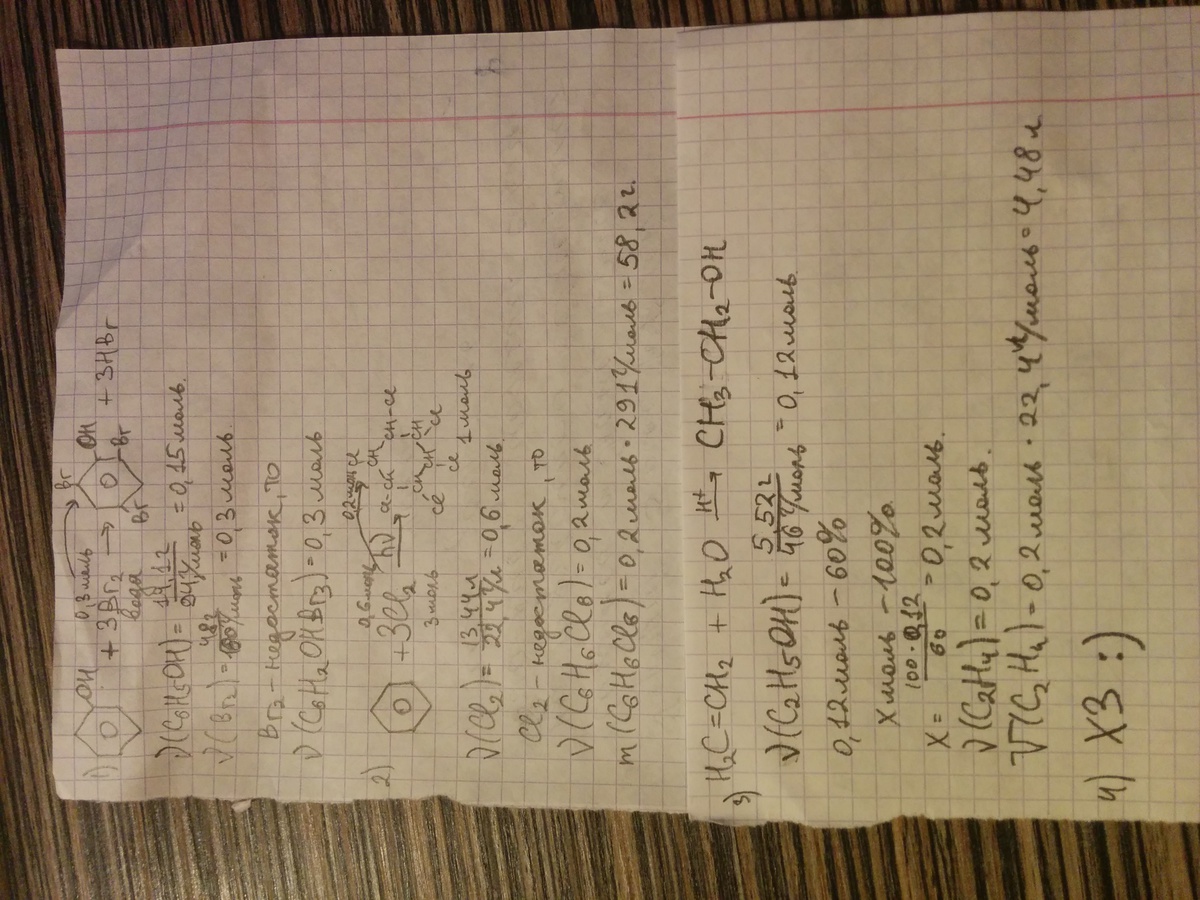 1) OH + 3Br₂ → OH + 3HBr
0,3 моль
вода
Br Br Br
ν(C₆H₅OH) = 14,12 / 94 г/моль = 0,15 моль.
ν(Br₂) = 48 г / 160 г/моль = 0,3 моль.
Br₂ – недостаток, то
ν(C₆H₂OHBr₃) = 0,3 моль
0,6 моль 0,2 моль
2) + 3Cl₂ hν→ Cl-CH CH CH-Cl
3 моль CH CH CH Cl
Cl Cl Cl 1 моль
ν(Cl₂) = 13,44 л / 22,4 г/л = 0,6 моль.
Cl₂ – недостаток, то
ν(C₆H₆Cl₆) = 0,2 моль
m(C₆H₆Cl₆) = 0,2 моль · 291 г/моль = 58,2 г.
3) H₂C=CH₂ + H₂O H⁺→ CH₃–CH₂–OH
ν(C₂H₅OH) = 5,52 г / 46 г/моль = 0,12 моль
0,12 моль – 60%
X моль – 100%
X = 100 · 0,12 / 60 = 0,2 моль.
ν(C₂H₄) = 0,2 моль.
V(C₂H₄) = 0,2 моль · 22,4 л/моль = 4,48 л
4) ХЗ :)